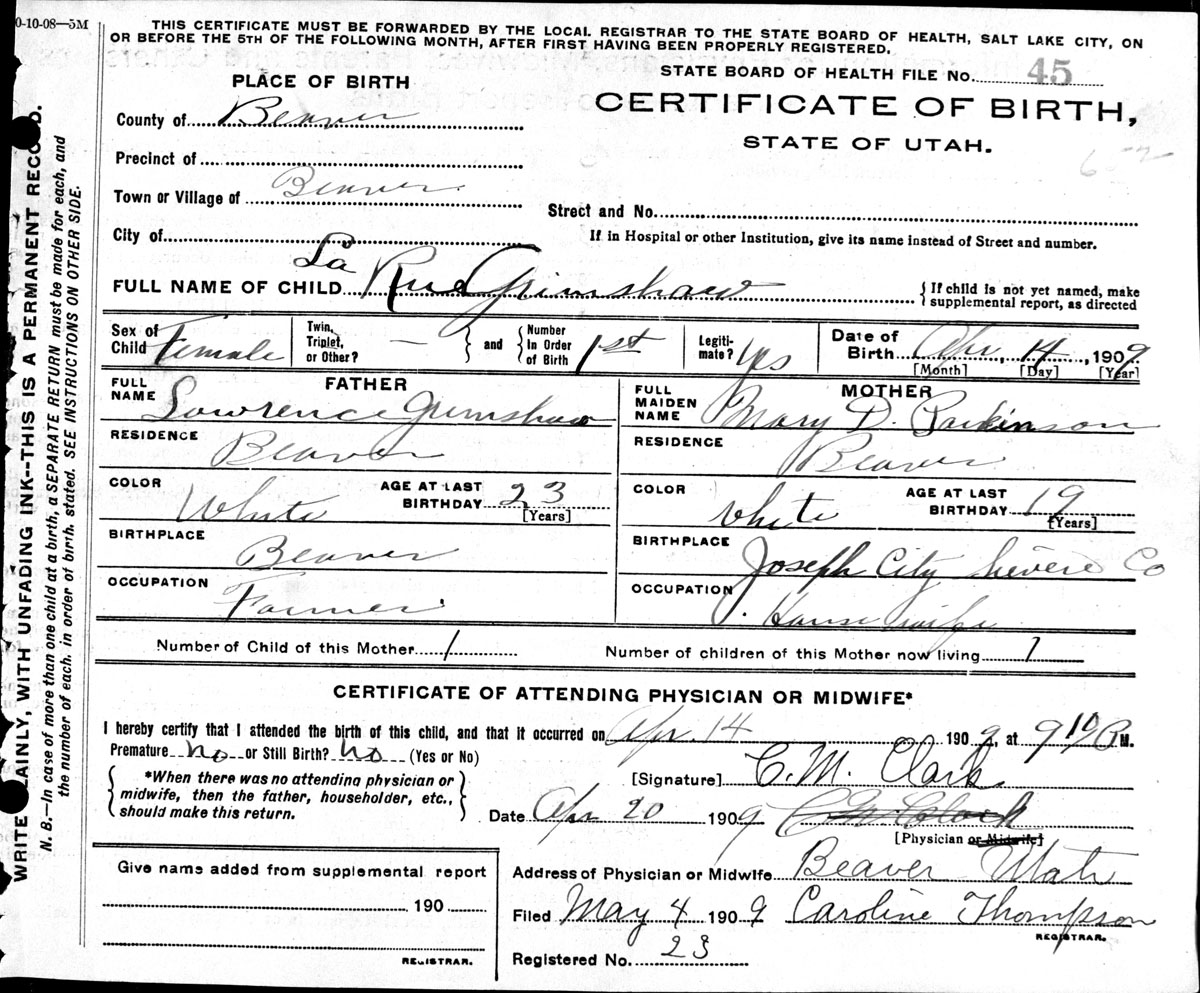 0-10-08—5M
THIS CERTIFICATE MUST BE FORWARDED BY THE LOCAL REGISTRAR TO THE STATE BOARD OF HEALTH, SALT LAKE CITY, ON
OR BEFORE THE 5TH OF THE FOLLOWING MONTH, AFTER FIRST HAVING BEEN PROPERLY REGISTERED.
PLACE OF BIRTH
STATE BOARD OF HEALTH FILE No. 45
CERTIFICATE OF BIRTH,
STATE OF UTAH.
652
County of Beaver
Precinct of
Town or Village of Beaver
Street and No.
City of
If in Hospital or other Institution, give its name instead of Street and number.
FULL NAME OF CHILD La Rue Grimshaw
{ If child is not yet named, make
supplemental report, as directed
Sex of Child Female
Twin, Triplet, or Other? — } and { Number In Order of Birth 1st
Legiti-mate? Yes
Date of Birth Apr, 14, 1909
[Month] [Day] [Year]
FATHER
FULL NAME Lowrence Grimshaw
RESIDENCE Beaver
COLOR White AGE AT LAST BIRTHDAY 23 [Years]
BIRTHPLACE Beaver
OCCUPATION Farmer
MOTHER
FULL MAIDEN NAME Mary D. Parkinson
RESIDENCE Beaver
COLOR White AGE AT LAST BIRTHDAY 19 [Years]
BIRTHPLACE Joseph City Severe Co
OCCUPATION House wife
Number of Child of this Mother 1 Number of children of this Mother now living 1
CERTIFICATE OF ATTENDING PHYSICIAN OR MIDWIFE*
I hereby certify that I attended the birth of this child, and that it occurred on Apr. 14 1909, at 9 10 P M.
Premature No or Still Birth? No (Yes or No)
{ *When there was no attending physician or
midwife, then the father, householder, etc.,
should make this return. }
[Signature] C. M. Clark
Date Apr 20 1909 C M Clark
[Physician or Midwife]
Address of Physician or Midwife Beaver Utah
Filed May 4 1909 Caroline Thompson
REGISTRAR.
Registered No. 23
Give name added from supplemental report
190
REGISTRAR.
WRITE PLAINLY, WITH UNFADING INK--THIS IS A PERMANENT RECORD.
N. B.—In case of more than one child at a birth, a SEPARATE RETURN must be made for each, and
the number of each, in order of birth, stated. SEE INSTRUCTIONS ON OTHER SIDE.